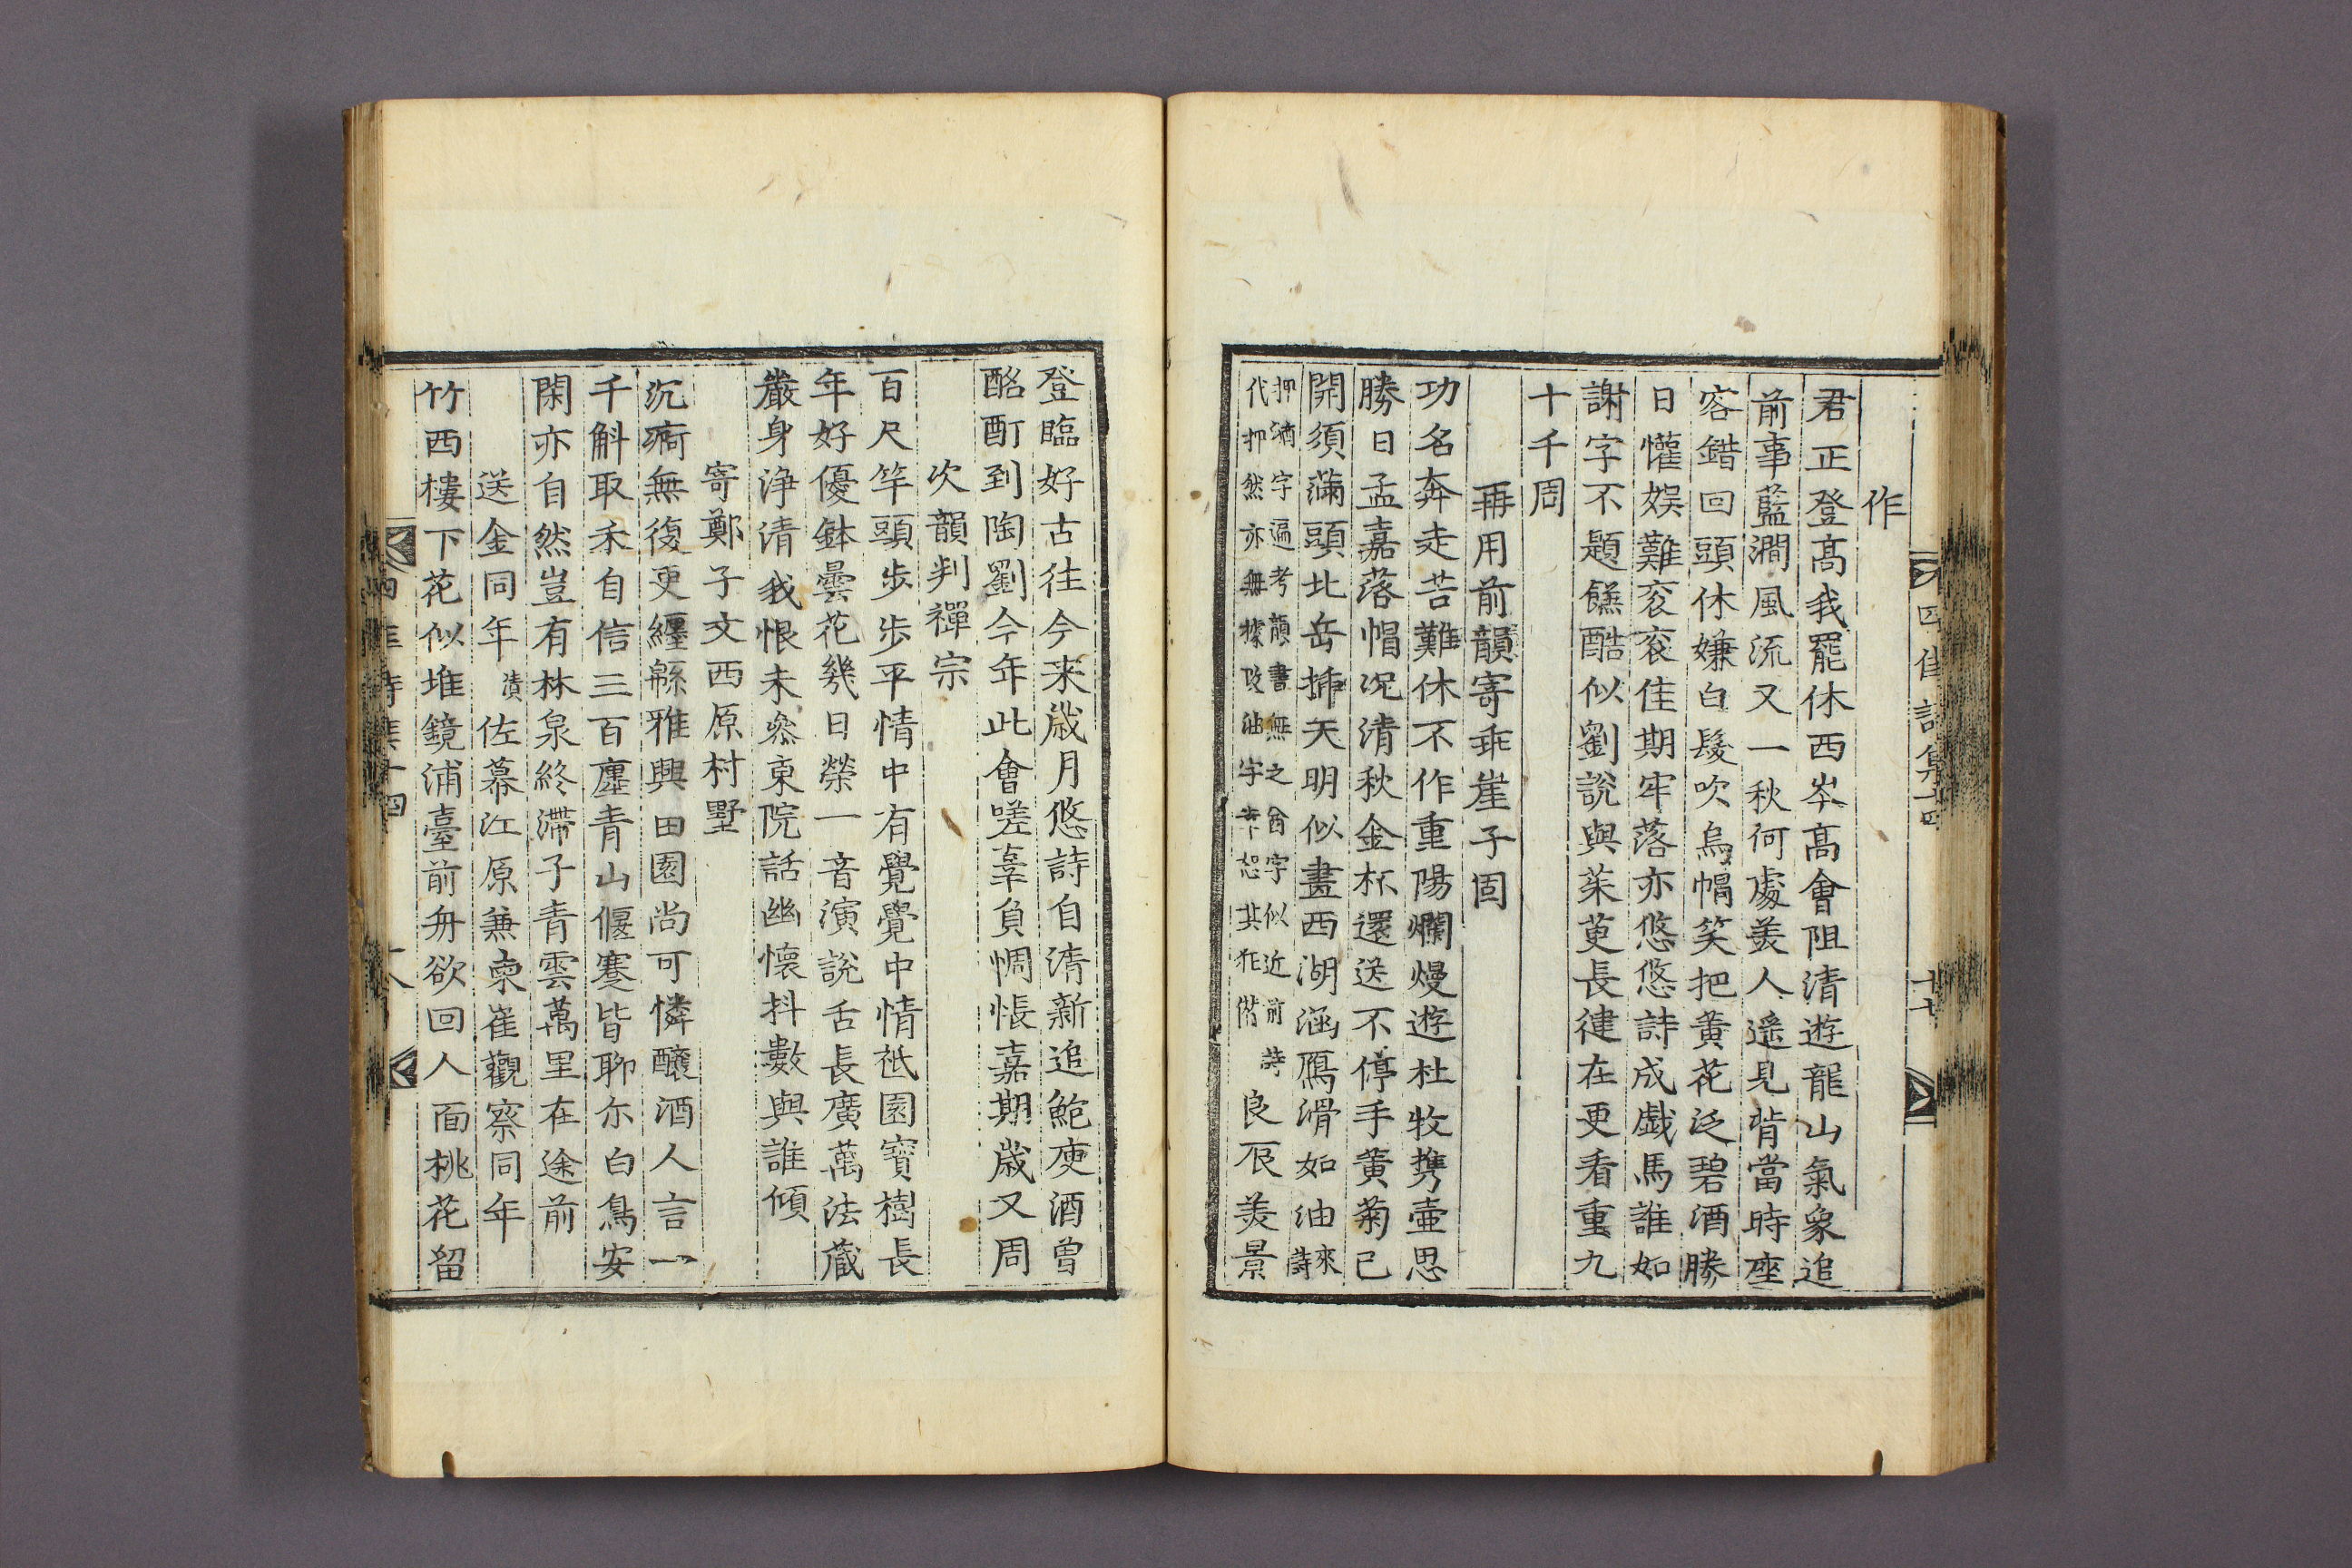 四佳詩集十四
十七
作
君正登高我罷休西岑高會阻清遊龍山氣象追
前事藍澗風流又一秋何處美人遙見背當時座
客錯回頭休嫌白髮吹烏帽笑把黃花泛碧酒勝
日懽娛難袞袞佳期牢落亦悠悠詩成戱馬誰如
謝字不題餻酷似劉說與茱萸長健在更看重九
十千周
再用前韻寄乖崖子固
功名奔走苦難休不作重陽爛熳遊杜牧携壷思
勝日孟嘉落帽况清秋金杯還送不停手黃菊已
開須滿頭北岳揷天明似畫西湖涵鴈滑如油來詩
押酒字遍考韻書無之酋字似近前詩
代押然亦無據改油字幸恕其狂僭良辰美景
登臨好古往今来歲月悠詩自清新追鮑庾酒曾
酩酊到陶劉今年此會嗟辜負惆悵嘉期歲又周
次韻判禪宗
百尺竿頭步步平情中有覺覺中情祗園寶樹長
年好優鉢曇花幾日榮一音演說舌長廣萬法藏
嚴身淨清我恨未叅東院話幽懷抖數與誰傾
寄鄭子文西原村墅
沉痾無復更纒緜雅興田園尚可憐釀酒人言一
千斛取禾自信三百廛青山偃蹇皆聊尒白鳥安
閑亦自然豈有林泉終滯子青雲萬里在途前
送金同年漬佐幕江原兼柬崔觀察同年
竹西樓下花似堆鏡浦臺前舟欲回人面桃花留
四佳詩集十四
十八